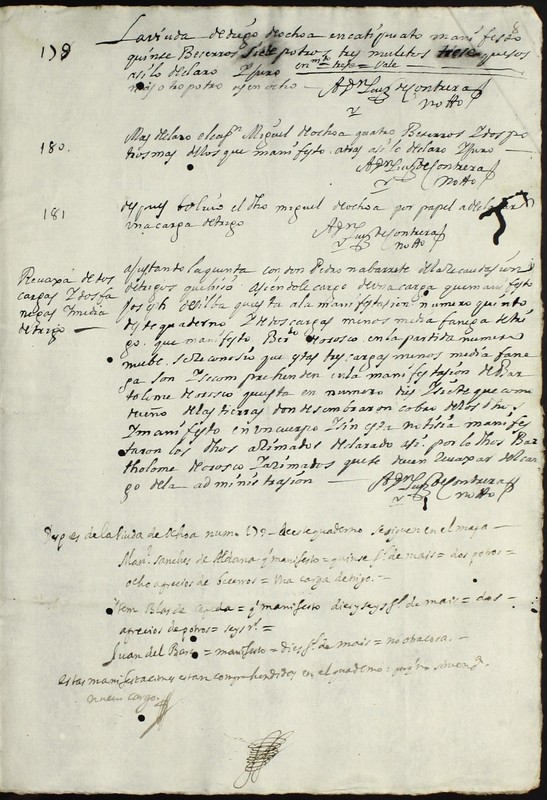 179
La viuda de diego de ochoa en catiguato manifesto
quinse Beserros siete potros tres muletos quesos
asi lo declaro Y juro en mdo tres = Vale
mas otro potro es en ocho Adn Luis de Contreras
notto
180.
Mas declaro el capn Miguel de ochoa quatro Beserros Y dos po
tros mas de los que manifesto atras asi lo declaro Y juro
Adn Luis de Contreras
notto
181
despues bolvio el dho miguel de ochoa por papel a declarar
una carga de trigo
Adn Luis de Contreras
notto
Revaxa de dos
cargas Y dos fa
negas Y media
de trigo
ajustando la quenta con don Pedro nabarrete de la Recaudasion
de trigos que hiso asiendole cargo de una carga que manifesto
Joseph de Silba questa a la manifestasion numero quinto
deste quaderno Y de dos cargas menos media fanega de tri
go. que manifesto Berdo de orosco en la partida numero
nuebe. se Reconosio que estas tres cargas menos media fane
ga son Y se comprehenden en la manifestasion de Bar
tolome de orosco questa en numero dies Y siete que como
dueño de las tierras donde sembraron cobro de los dhos
Y manifesto en un cuerpo Y sin esta notisia manifes
taron los dhos arimados declarado asi. por lo dhos Bar
tholome de orosco Y arimados que se deven Revaxar del car
go de la administrasion
Adn Luis de Contreras
notto
Despues de la Viuda de ochoa num 179 de este quaderno se siguen en el mapa
Manl sanches de Aldana q manifesto = quinse fs de mais = dos potros =
ocho aprecios de becerros = Una carga de trigo. =
Item Blas de = q manifesto dies y seys fs de mais = dos
aprecios de potros = seys rs =
Juan del = manifesto = dies fs de mais = no otra cosa. =
estas manifestaciones estan comprehendidas en el quaderno
nuevo cargo.